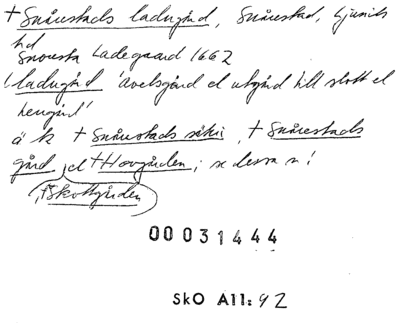 + Snårestads ladugård, Snårestad, Ljunits
hd
Snoresta Ladegaard 1662
ladugård 'avelsgård el utgård till slott el
herrgård'
ä k + Snårestads säteri, + Snårestads
gård el + Hovgården; se dessa n!
, + Skottgården
00031444
SkO All: 92